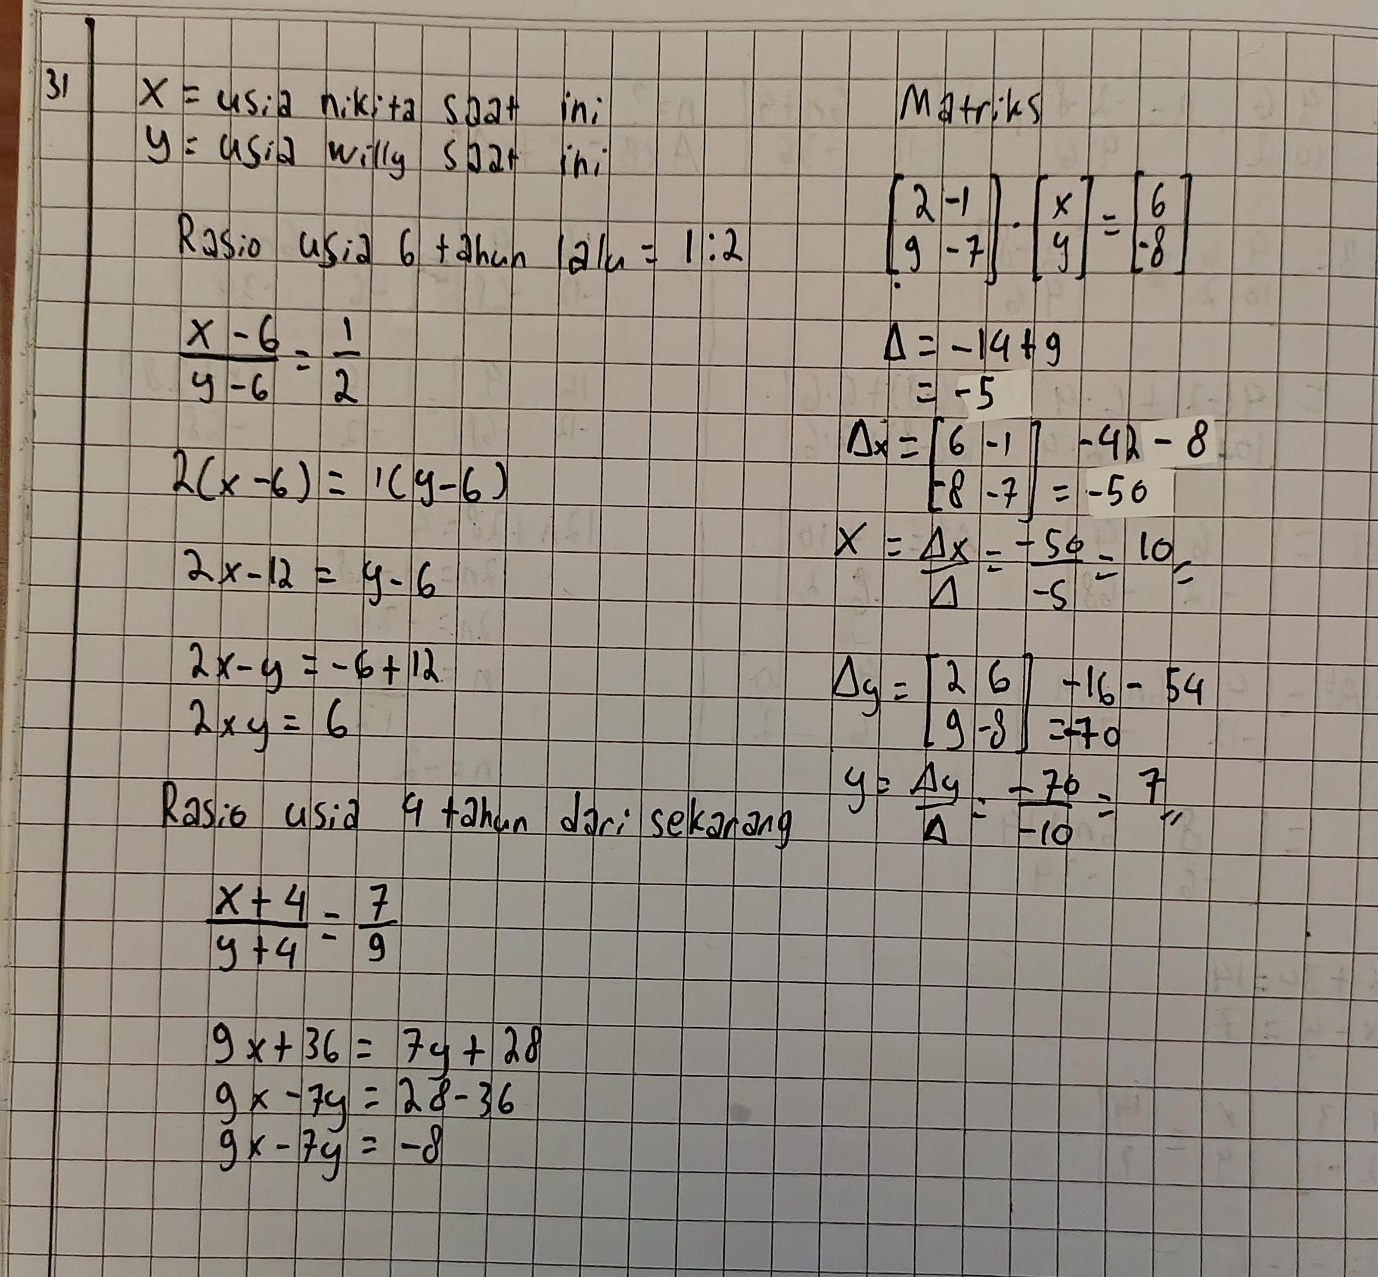 31
x = usia nikita saat ini
y = usia willy saat ini
Rasio usia 6 tahun lalu = 1:2
x - 6 / y - 6 = 1 / 2
2(x - 6) = 1(y - 6)
2x - 12 = y - 6
2x - y = -6 + 12
2xy = 6
Rasio usia 4 tahun dari sekarang
x + 4 / y + 4 = 7 / 9
9x + 36 = 7y + 28
9x - 7y = 28 - 36
9x - 7y = -8
Matriks
[2 -1] . [x] = [6]
[9 -7] [y] [-8]
Δ = -14 + 9
= -5
Δx = [6 -1] -42 - 8
[-8 -7] = -50
X = Δx / Δ = -50 / -5 = 10
Δy = [2 6] -16 - 54
[9 -8] = -70
y = Δy / Δ = -70 / -10 = 7